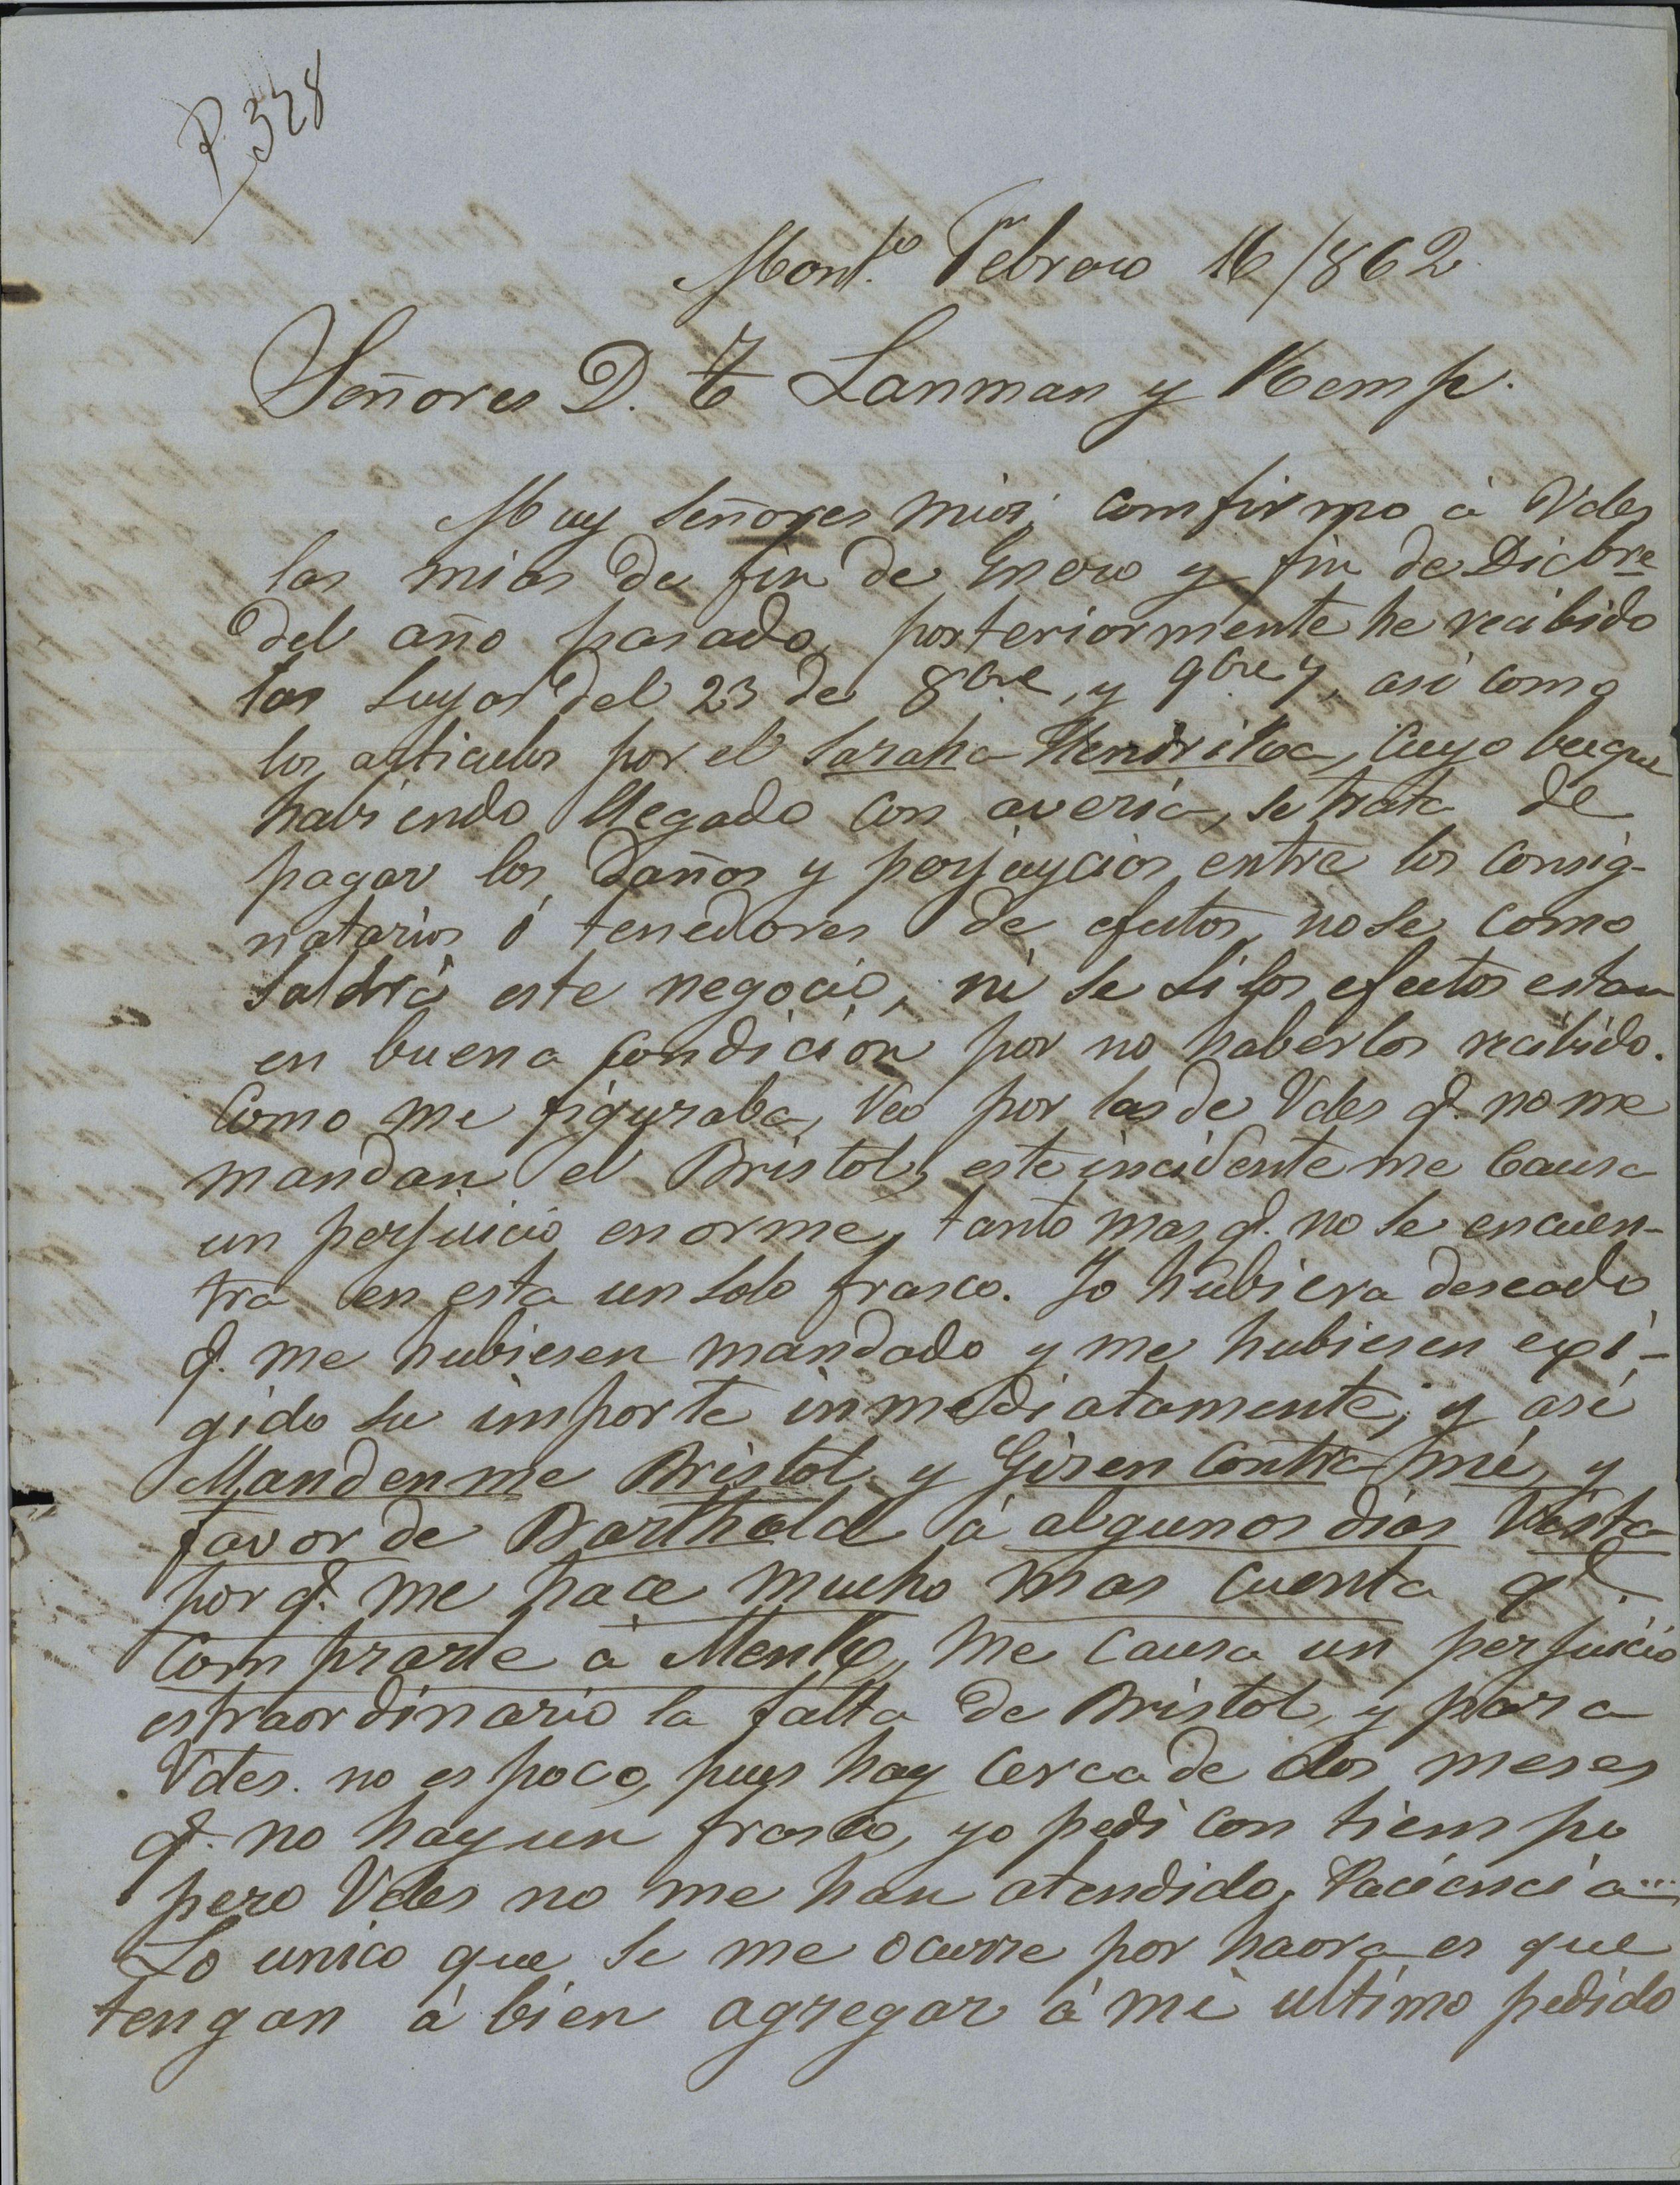 P. 328
Mont.º Febrero 16/862
Señores D. T Lanman y Kemp.
Muy Señores mios; comfirmo à Vdes
las mias de fin de Enero y fin de Dicbre
del año pasado, posteriormente he recibido
las suyas del 23 de 8bre, y 9bre 7, asi como
los articulos por el Saraha Hendrika, Cuyo buque
habiendo llegado con averia, se trata de
pagar los Daños y perjuycios entre los Consig-
natarios ó tenedores de efectos, no se como
saldrá este negocio, ni se si los efectos estan
en buena condicion por no haberlos recibido.
Como me figuraba, Veo por las de Vdes q. no me
mandan el Bristol, este incidente me Causa
un perjuicio enorme, tanto mas q. no se encuen-
tra en esta un solo frasco. Yo hubiera deseado
q. me hubiesen mandado y me hubiesen exi-
gido su importe inmediatamente; y asi
Mandenme Bristol y Giren contra mi, y
favor de Barthold à algunos dias Vista
por q. me hace mucho mas cuenta q.
Comprarle à Menk, me causa un perjuicio
estraordinario la falta de Bristol, y para
Vdes. no es poco, pues hay cerca de dos meses
q. no hay un frasco, yo pedi con tiempo
pero Vdes no me han atendido, Paciencia...
Lo unico que se me ocurre por haora es que
tengan à bien agregar à mi ultimo pedido